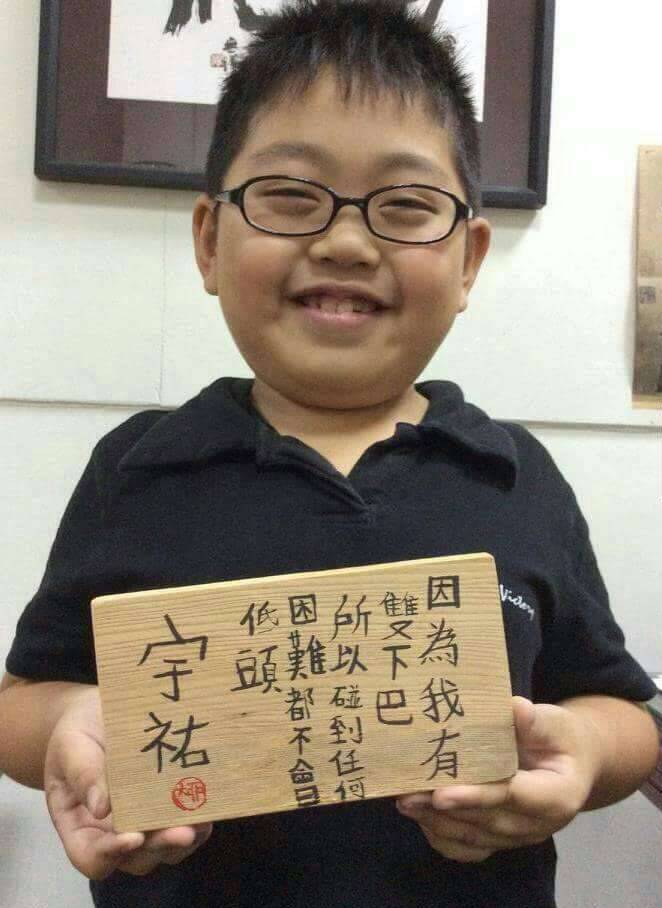 因為我有
雙下巴
所以碰到任何
困難都不會
低頭
宇祐
Victory